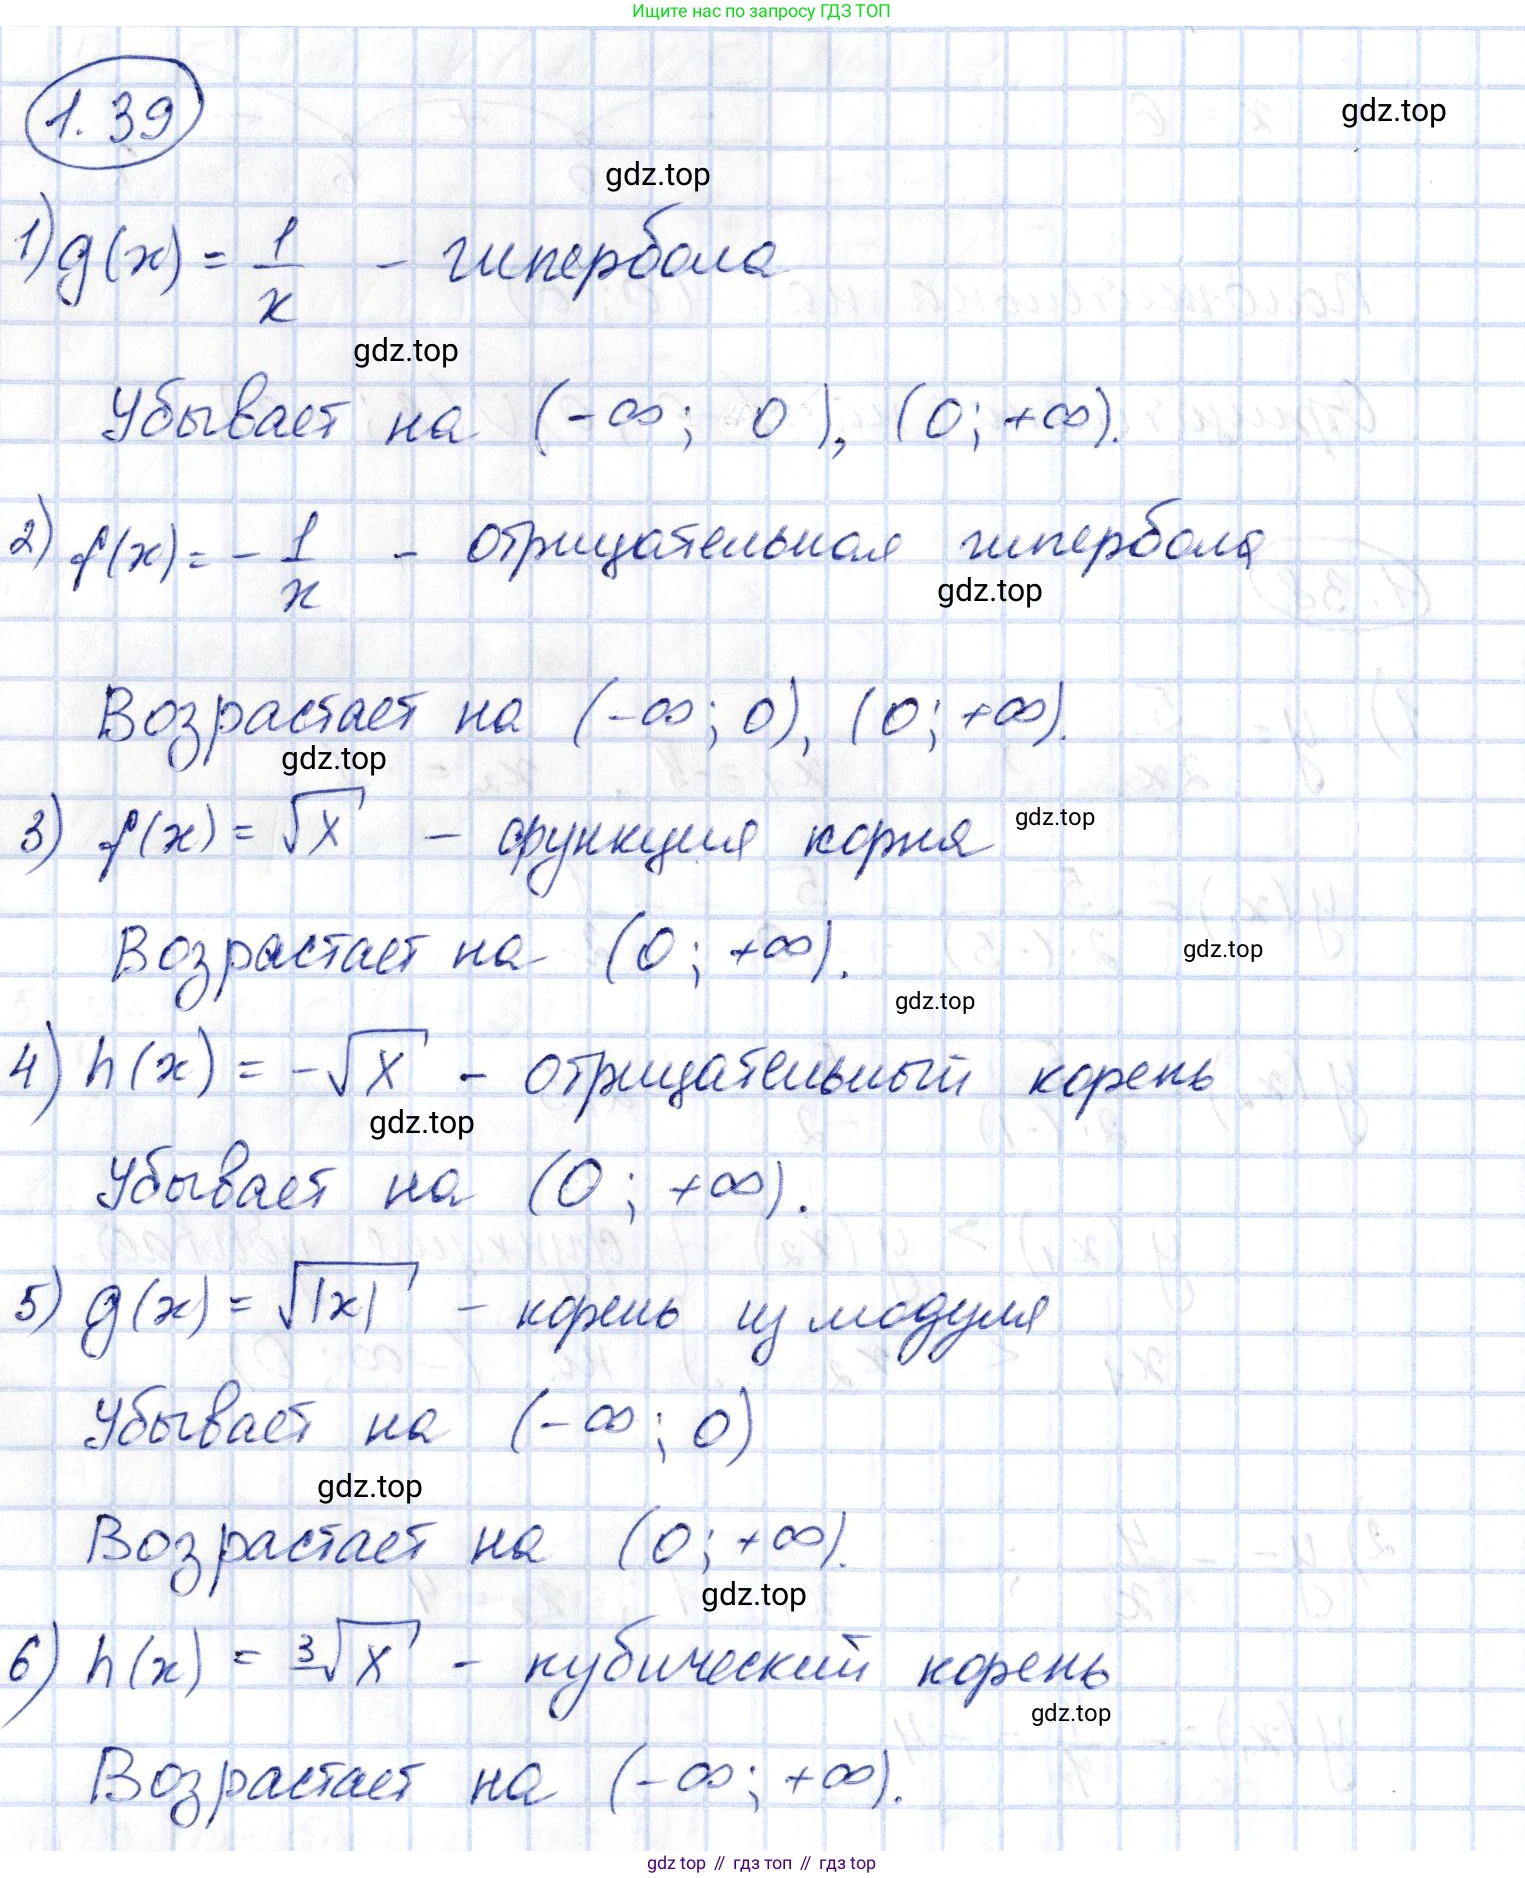 Ищите нас по запросу ГДЗ ТОП
1.39
gdz.top
gdz.top
1) g(x) = 1/x - гипербола
gdz.top
Убывает на (-∞; 0), (0; +∞).
2) f(x) = -1/x - отрицательная гипербола
gdz.top
Возрастает на (-∞; 0), (0; +∞).
gdz.top
3) f(x) = √x - функция корня
gdz.top
Возрастает на (0; +∞).
gdz.top
gdz.top
4) h(x) = -√x - отрицательный корень
gdz.top
Убывает на (0; +∞).
5) g(x) = √|x| - корень из модуля
Убывает на (-∞; 0)
gdz.top
Возрастает на (0; +∞).
gdz.top
6) h(x) = ³√x - кубический корень
gdz.top
Возрастает на (-∞; +∞).
gdz top // гдз топ // гдз top